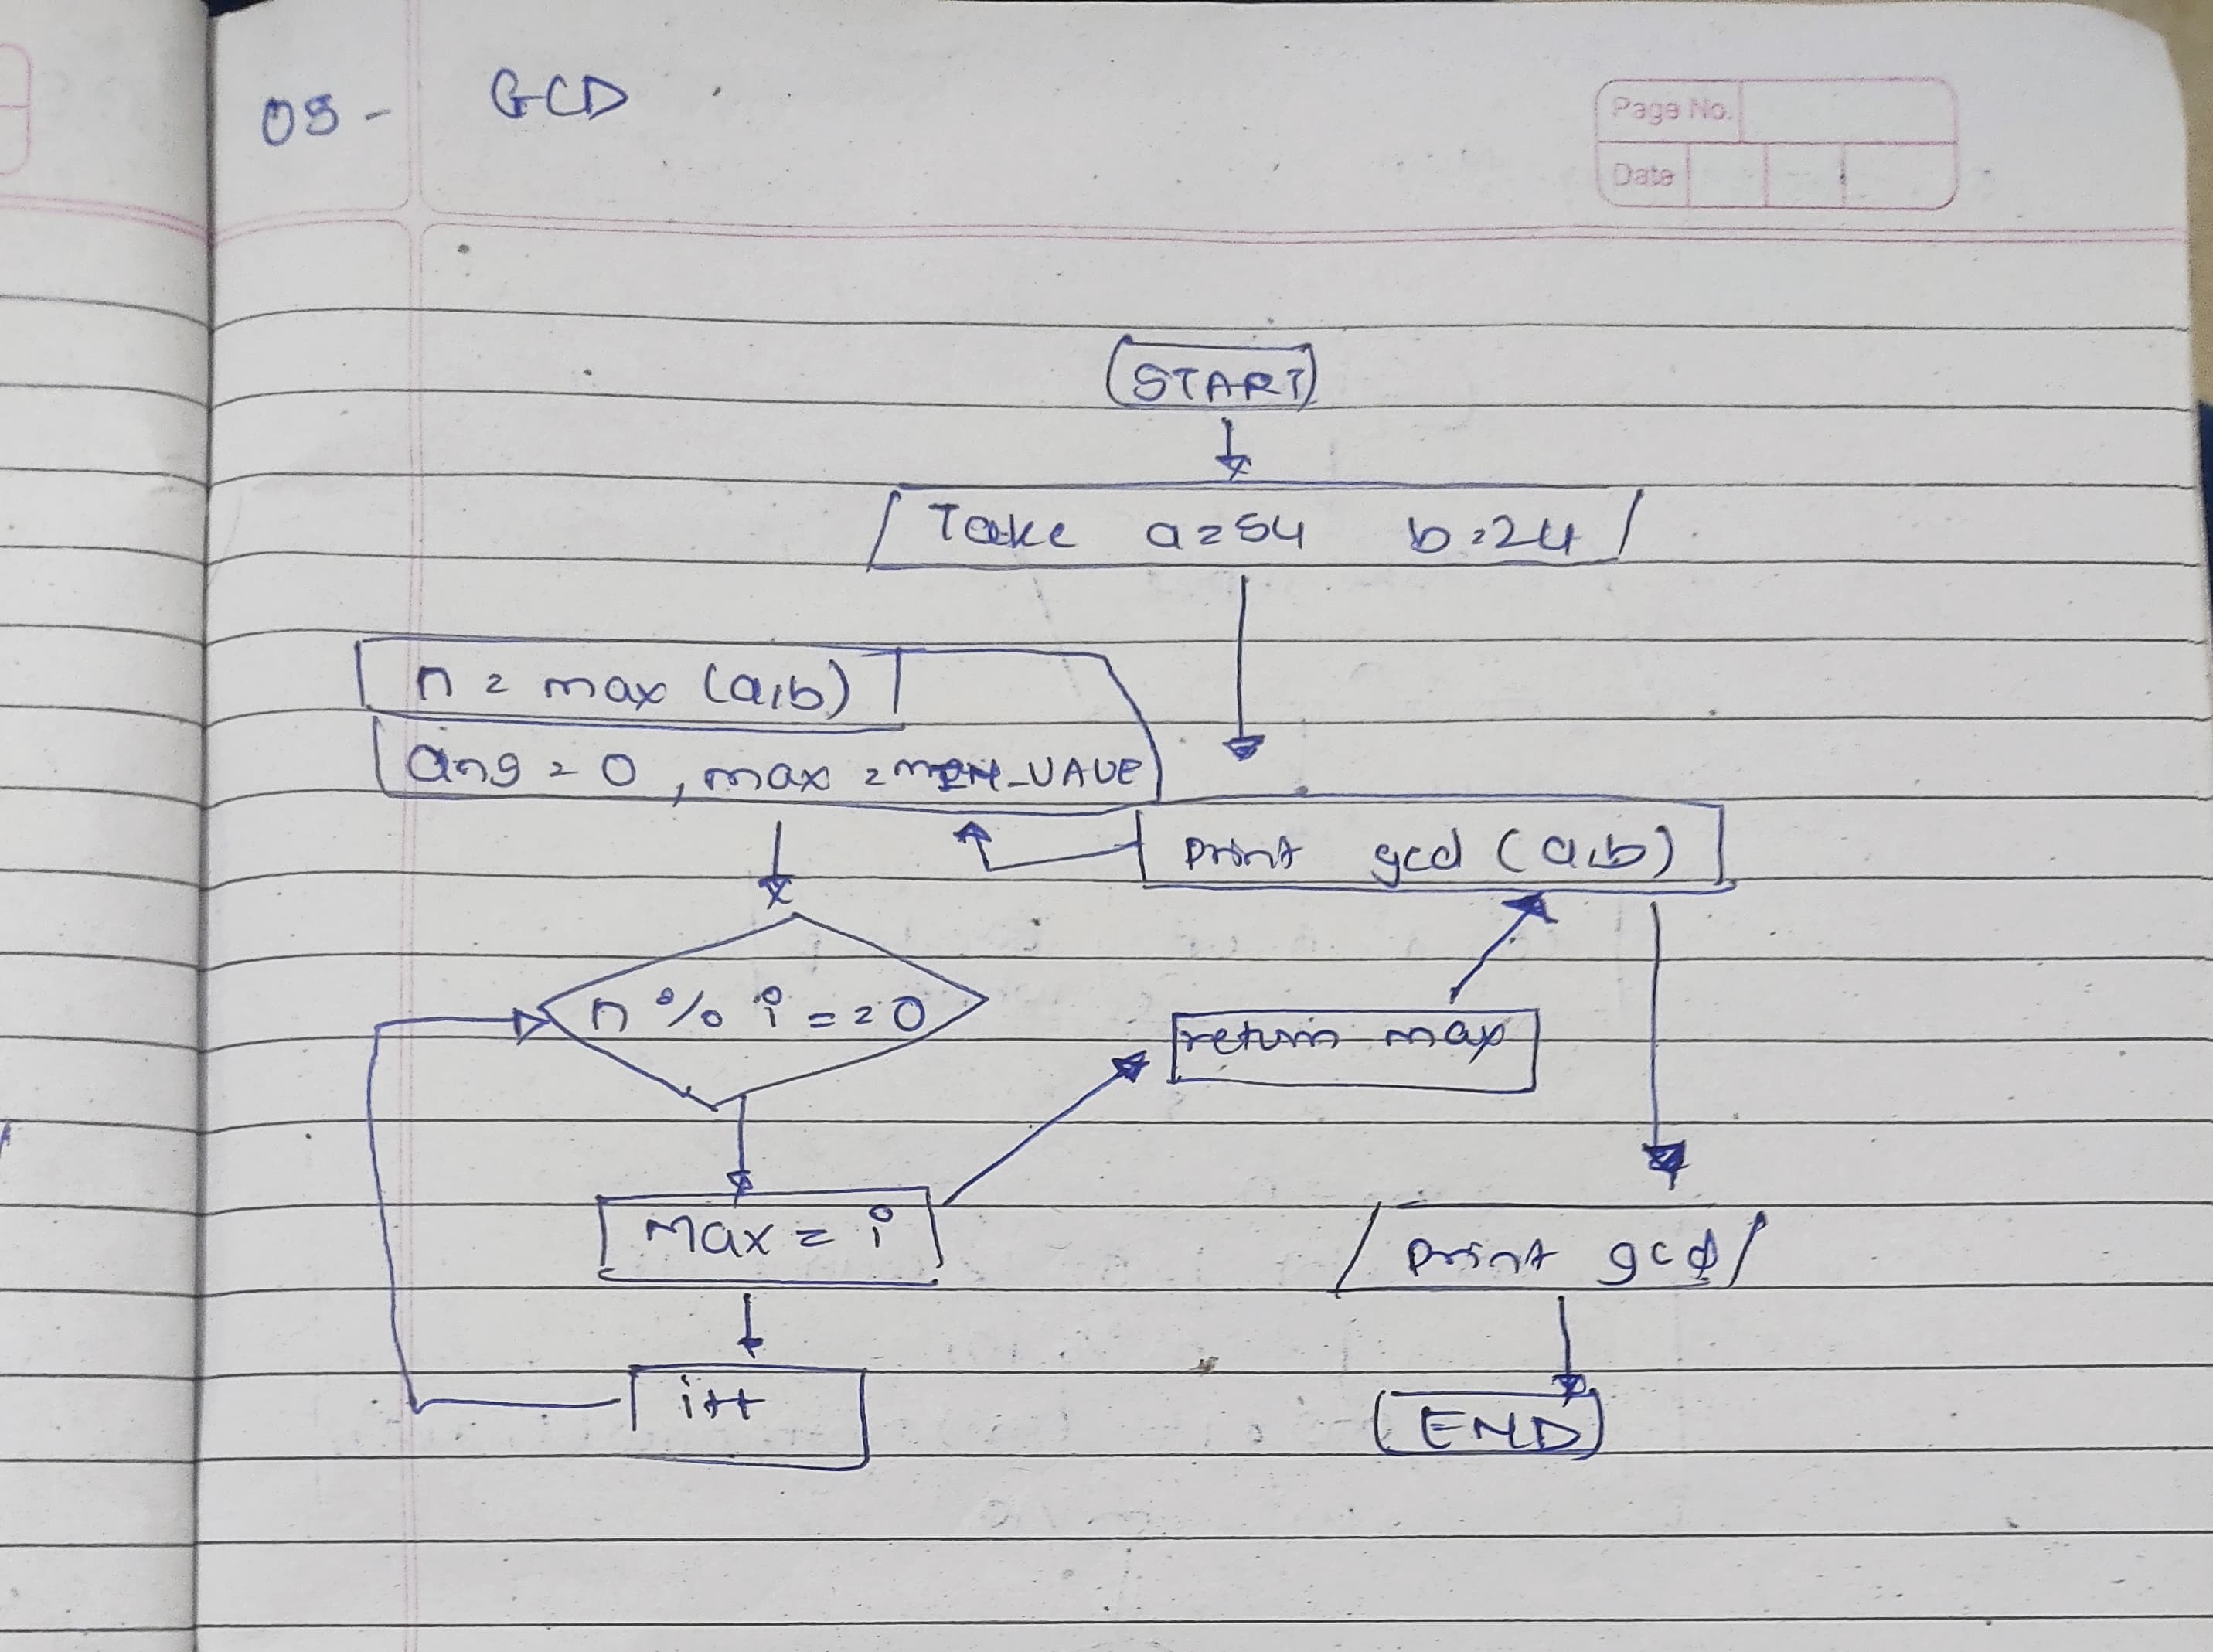 09- GCD
Page No.
Date
START
Take a=54 b=24
n = max (a,b)
ans = 0, max = MIN_VAUE
print gcd (a,b)
n % i == 0
return max
max = i
print gcd
i++
END